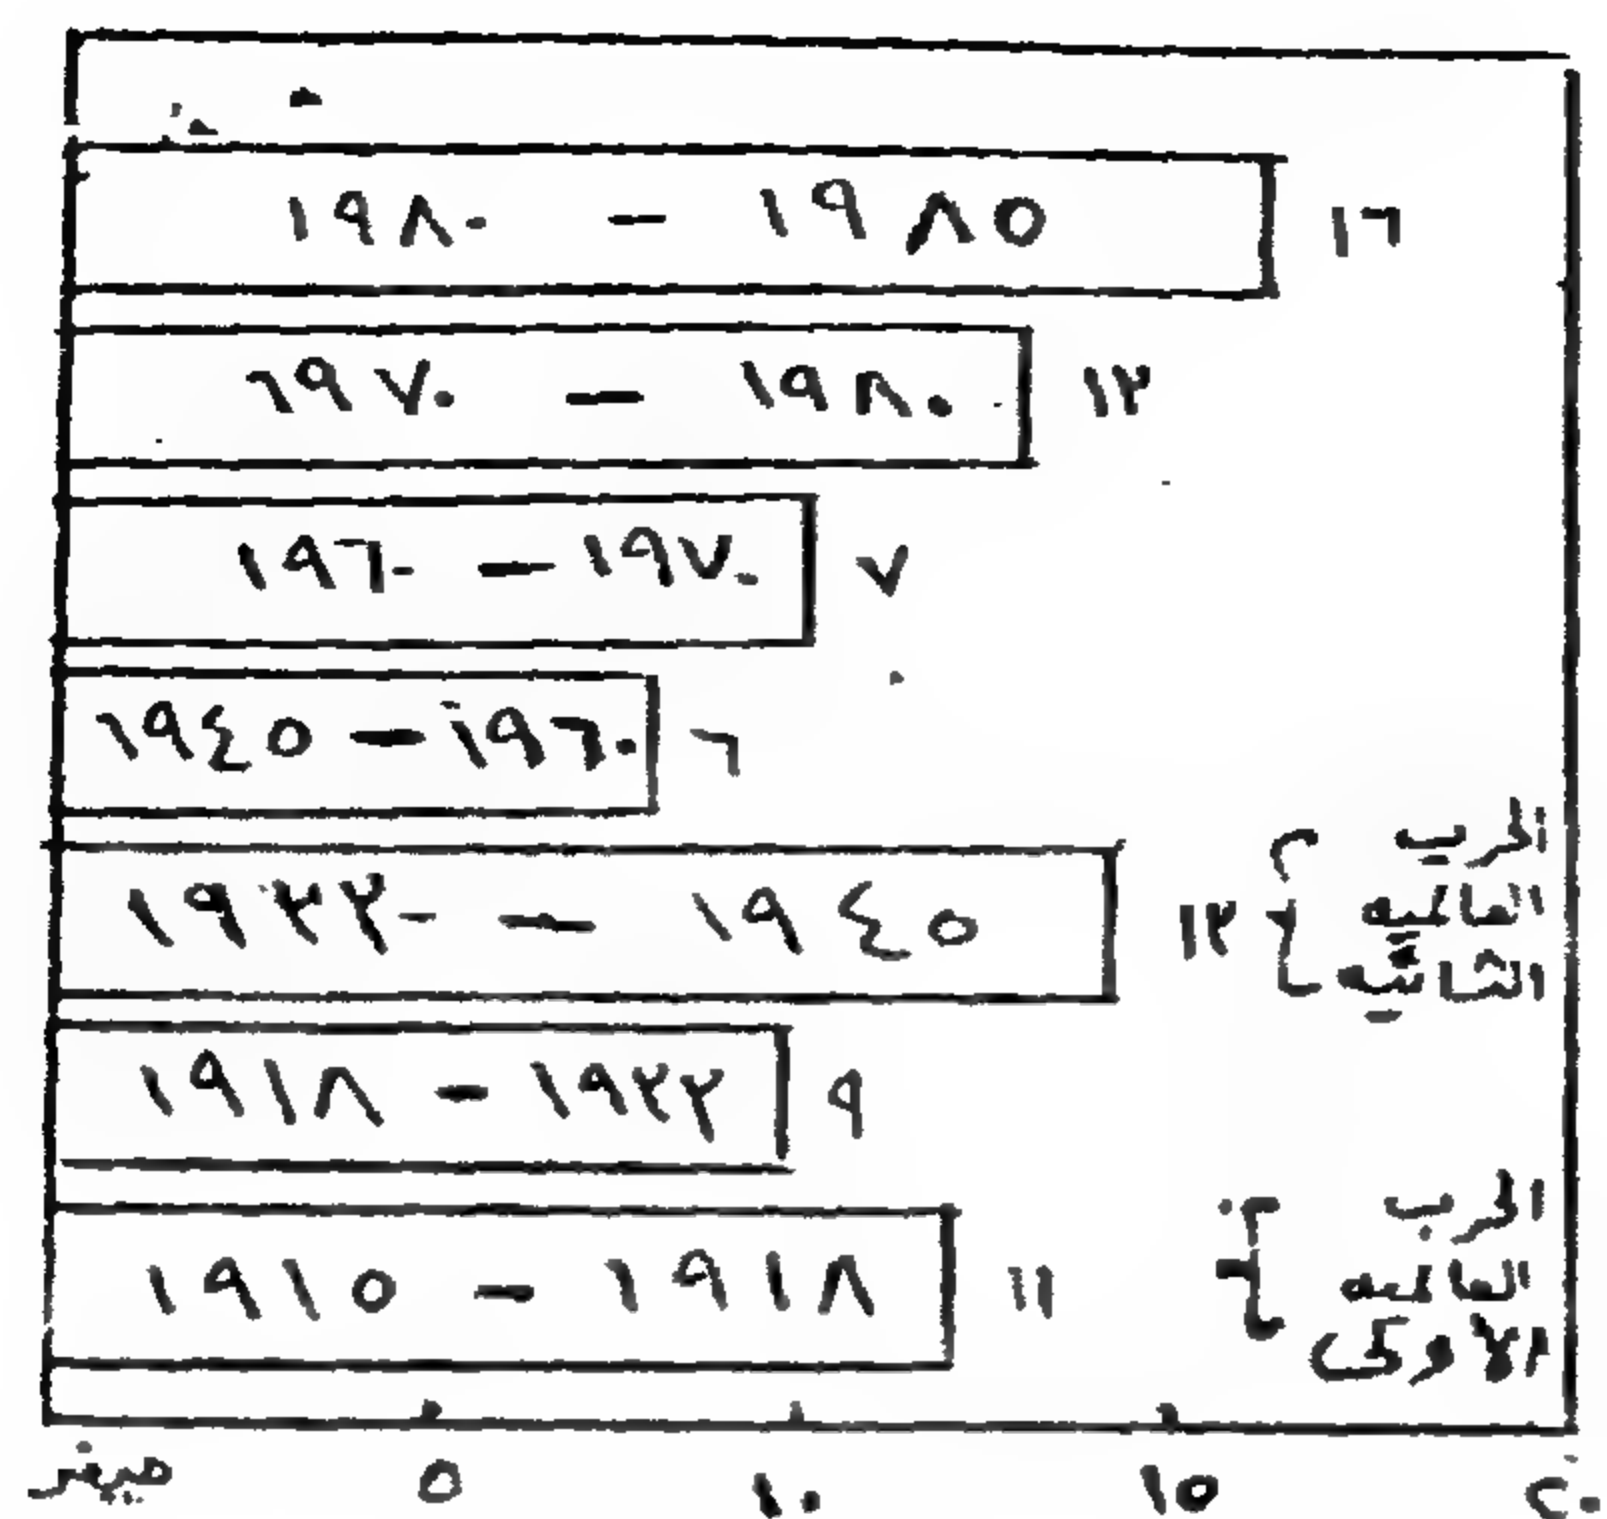 ١٩٨٠ – ١٩٨٥ ١٦
١٩٧٠ – ١٩٨٠ ١٣
١٩٦٠ – ١٩٧٠ ٧
١٩٤٥ – ١٩٦٠ ٦
١٩٣٣ – ١٩٤٥ ١٣
الحرب
العالميه
الثانيه
١٩١٨ – ١٩٣٣ ٩
١٩١٥ – ١٩١٨ ١١
الحرب
العالميه
الاولى
صفر ٥ ١٠ ١٥ ٢٠